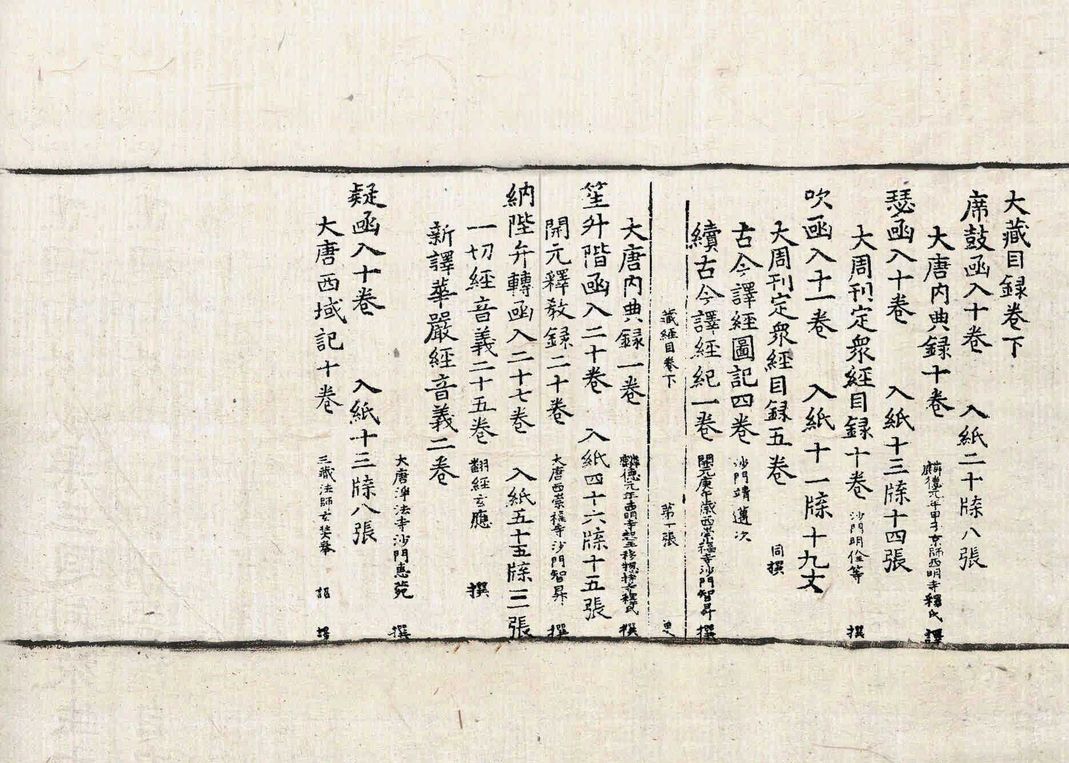 大藏目録卷下
席鼓函入十卷 入紙二十牒八張
大唐内典録十卷 麟德元年甲子京師西明寺釋氏 譔
瑟函入十卷 入紙十三牒十四張
大周刊定衆經目録十卷 沙門明佺等 撰
吹函入十一卷 入紙十一牒十九丈
大周刊定衆經目録五卷 同撰
古今譯經圖記四卷 沙門靖邁次
續古今譯經紀一卷 開元庚午歳西崇福寺沙門智昇 撰
藏經目卷下 第一張 史
大唐内典録一卷 麟德元年西明寺 釋氏 撰
笙升階函入二十卷 入紙四十六牒十五張
開元釋教録二十卷 大唐西崇福寺沙門智昇 撰
納陛弁轉函入二十七卷 入紙五十五牒三張
一切經音義二十五卷 翻經玄應 撰
新譯華嚴經音義二卷 大唐淨法寺沙門惠菀 撰
疑函入十卷 入紙十三牒八張
大唐西域記十卷 三藏法師玄奘奉 詔 譯